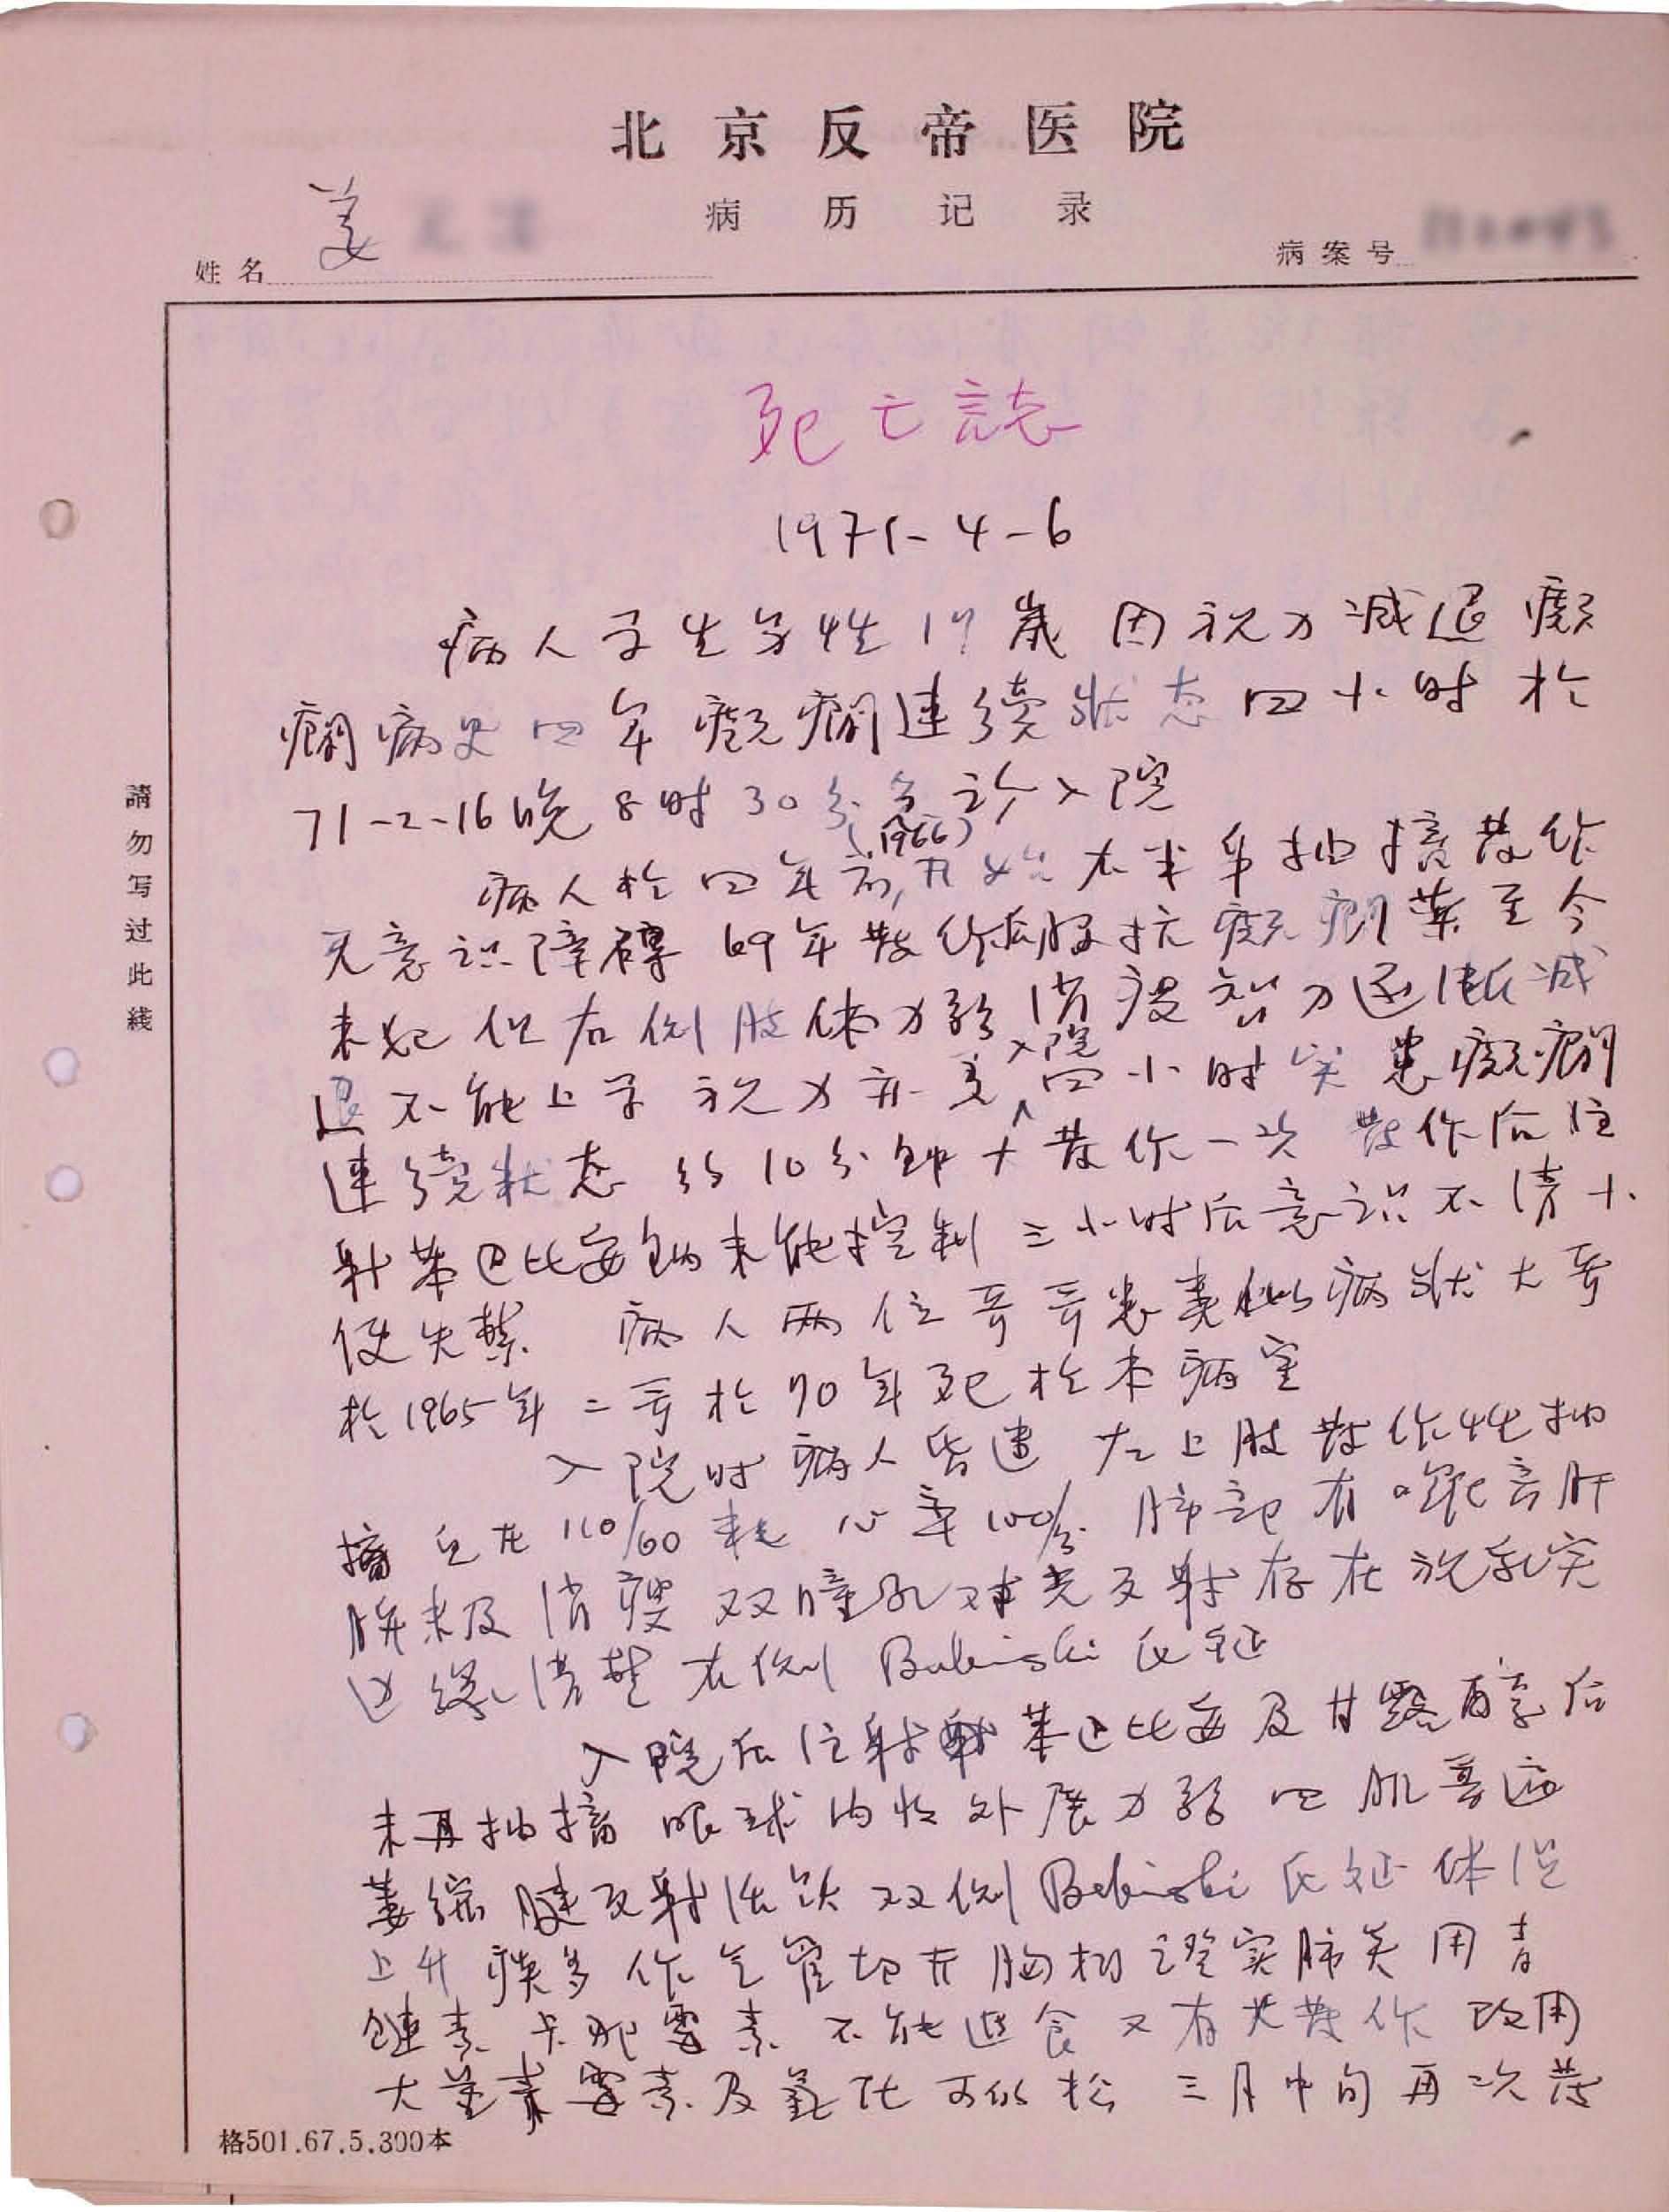 北京反帝医院
病历记录
姓名 姜
病案号
請勿写过此綫
死亡誌
1971-4-6
病人学生男性17岁因视力减退癫
痫病史四年癫痫连续状态四小时於
71-2-16晚8时30分急诊入院
(1966)
病人於四年前,开始右半身抽搐发作
无意识障碍 69年发作后服抗癫痫药至今
未犯 但右侧肢体力弱 消瘦智力逐渐减
退不能上学 视力亦差 入院四小时突患癫痫
连续状态 约10分钟大发作一次 发作后注
射苯巴比妥鈉未能控制 三小时后意识不清小
便失禁 病人两位哥哥患类似病状大哥
於1965年二哥於70年死於本病室
入院时病人昏迷 左上肢发作性抽
搐 血压110/60 心率100/分 肺部有啰音肝
脾未及 消瘦 双瞳孔对光反射存在 视乳突
边缘清楚 右侧 Babinski 氏征
入院后注射苯巴比妥及甘露醇后
未再抽搐 眼球内收外展力弱 四肌普遍
萎缩 腱反射活跃 双侧 Babinski 氏征 体温
上升 痰多 作气管切开 胸相證实肺炎 用青
链素 卡那霉素 不能进食 又有大发作 改用
大量 霉素及氢化可的松 三月中旬再次发
格501.67.5.300本